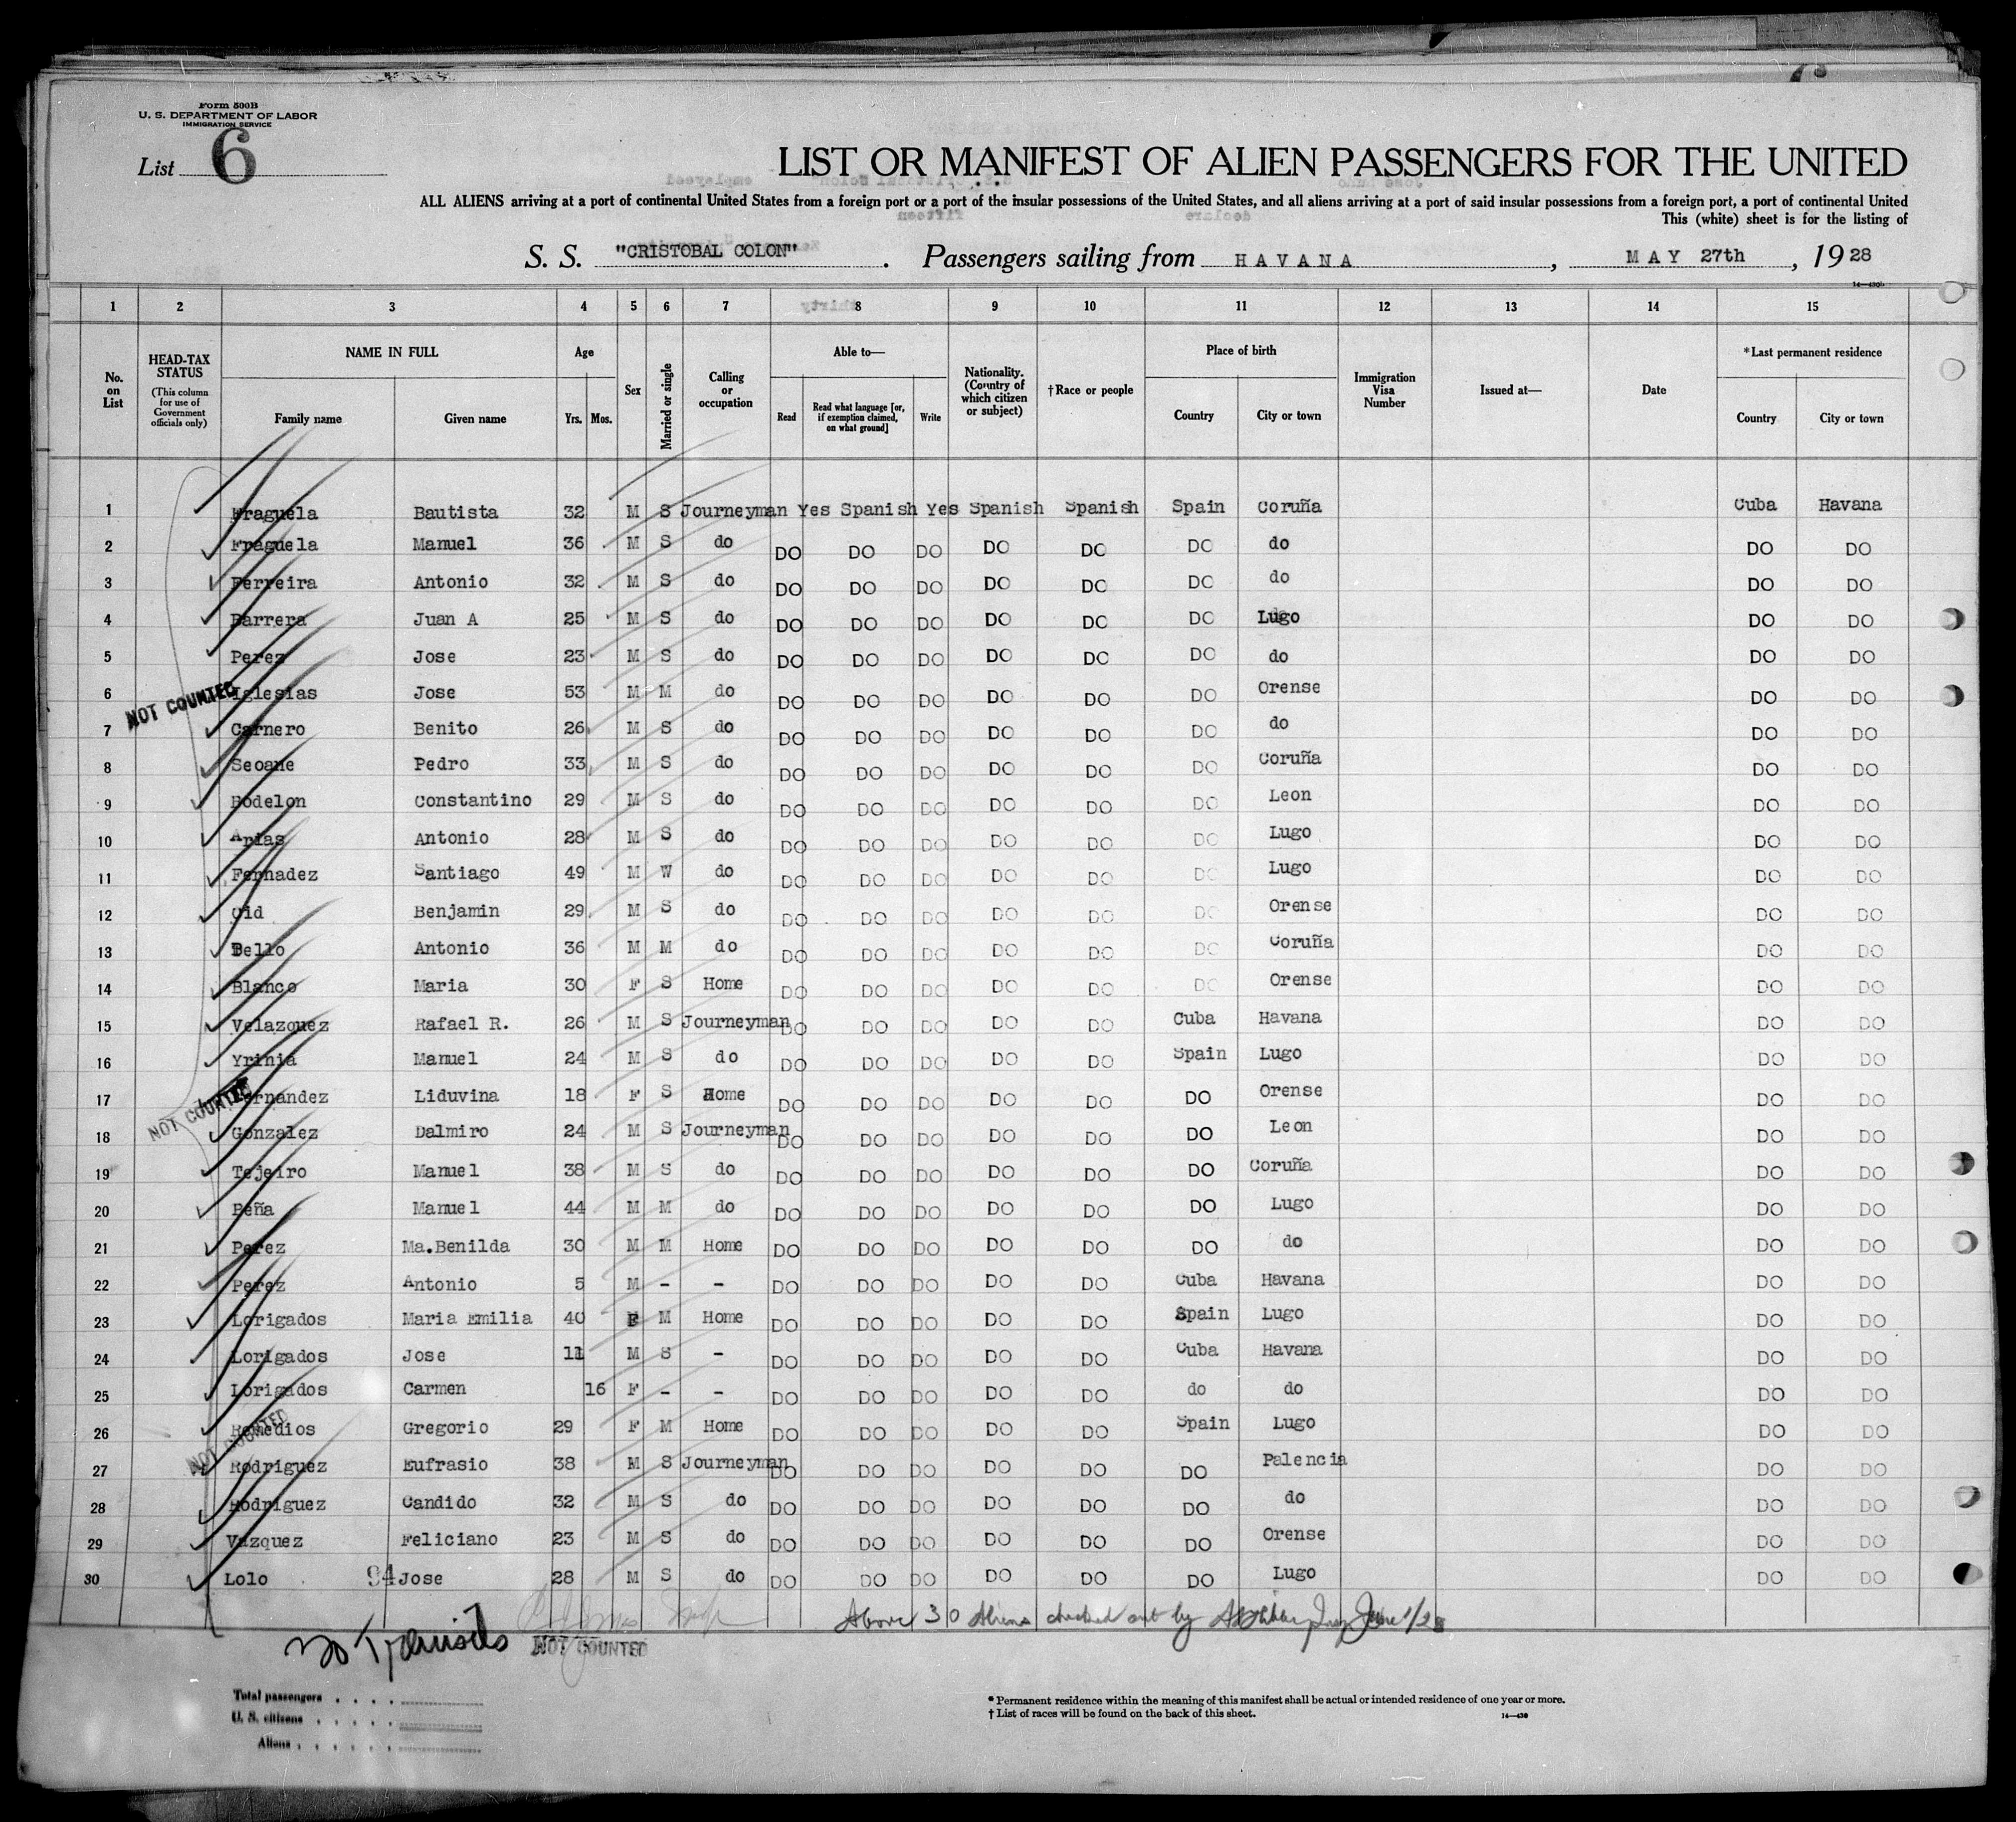 Form 500B
U. S. DEPARTMENT OF LABOR
IMMIGRATION SERVICE
List 6
LIST OR MANIFEST OF ALIEN PASSENGERS FOR THE UNITED
ALL ALIENS arriving at a port of continental United States from a foreign port or a port of the insular possessions of the United States, and all aliens arriving at a port of said insular possessions from a foreign port, a port of continental United
This (white) sheet is for the listing of
S. S. "CRISTOBAL COLON". Passengers sailing from HAVANA, MAY 27th, 1928
14—430b
1 2 3 4 5 6 7 8 9 10 11 12 13 14 15
No. on List
HEAD-TAX STATUS (This column for use of Government officials only)
NAME IN FULL Family name Given name
Age Yrs. Mos.
Sex
Married or single
Calling or occupation
Able to— Read Read what language [or, if exemption claimed, on what ground] Write
Nationality. (Country of which citizen or subject)
†Race or people
Place of birth Country City or town
Immigration Visa Number
Issued at—
Date
*Last permanent residence Country City or town
1 Fraguela Bautista 32 M S Journeyman Yes Spanish Yes Spanish Spanish Spain Coruña Cuba Havana
2 Fraguela Manuel 36 M S do DO DO DO DO DO DO do DO DO
3 Ferreira Antonio 32 M S do DO DO DO DO DO DO do DO DO
4 Barrera Juan A 25 M S do DO DO DO DO DO DO Lugo DO DO
5 Perez Jose 23 M S do DO DO DO DO DO DO do DO DO
6 Iglesias Jose 53 M M do DO DO DO DO DO DO Orense DO DO
NOT COUNTED
7 Carnero Benito 26 M S do DO DO DO DO DO DO do DO DO
8 Seoane Pedro 33 M S do DO DO DO DO DO DO Coruña DO DO
9 Bodelon Constantino 29 M S do DO DO DO DO DO DO Leon DO DO
10 Arias Antonio 28 M S do DO DO DO DO DO DO Lugo DO DO
11 Fernadez Santiago 49 M W do DO DO DO DO DO DO Lugo DO DO
12 Cid Benjamin 29 M S do DO DO DO DO DO DO Orense DO DO
13 Bello Antonio 36 M M do DO DO DO DO DO DO Coruña DO DO
14 Blanco Maria 30 F S Home DO DO DO DO DO DO Orense DO DO
15 Velazquez Rafael R. 26 M S Journeyman DO DO DO DO DO Cuba Havana DO DO
16 Yrinia Manuel 24 M S do DO DO DO DO DO Spain Lugo DO DO
17 Fernandez Liduvina 18 F S Home DO DO DO DO DO DO Orense DO DO
NOT COUNTED
18 Gonzalez Dalmiro 24 M S Journeyman DO DO DO DO DO DO Leon DO DO
19 Tejeiro Manuel 38 M S do DO DO DO DO DO DO Coruña DO DO
20 Peña Manuel 44 M M do DO DO DO DO DO DO Lugo DO DO
21 Perez Ma.Benilda 30 M M Home DO DO DO DO DO DO do DO DO
22 Perez Antonio 5 M - - DO DO DO DO DO Cuba Havana DO DO
23 Lorigados Maria Emilia 40 F M Home DO DO DO DO DO Spain Lugo DO DO
24 Lorigados Jose 11 M S - DO DO DO DO DO Cuba Havana DO DO
25 Lorigados Carmen 16 F - - DO DO DO DO DO do do DO DO
26 Remedios Gregorio 29 F M Home DO DO DO DO DO Spain Lugo DO DO
NOT COUNTED
27 Rodriguez Eufrasio 38 M S Journeyman DO DO DO DO DO DO Palencia DO DO
28 Rodriguez Candido 32 M S do DO DO DO DO DO DO do DO DO
29 Vazquez Feliciano 23 M S do DO DO DO DO DO DO Orense DO DO
30 Lolo 94 Jose 28 M S do DO DO DO DO DO DO Lugo DO DO
Above 30 Aliens checked out by June 1/28
30 Transits
NOT COUNTED
Total passengers
U. S. citizens
Aliens
* Permanent residence within the meaning of this manifest shall be actual or intended residence of one year or more.
† List of races will be found on the back of this sheet.
14—430